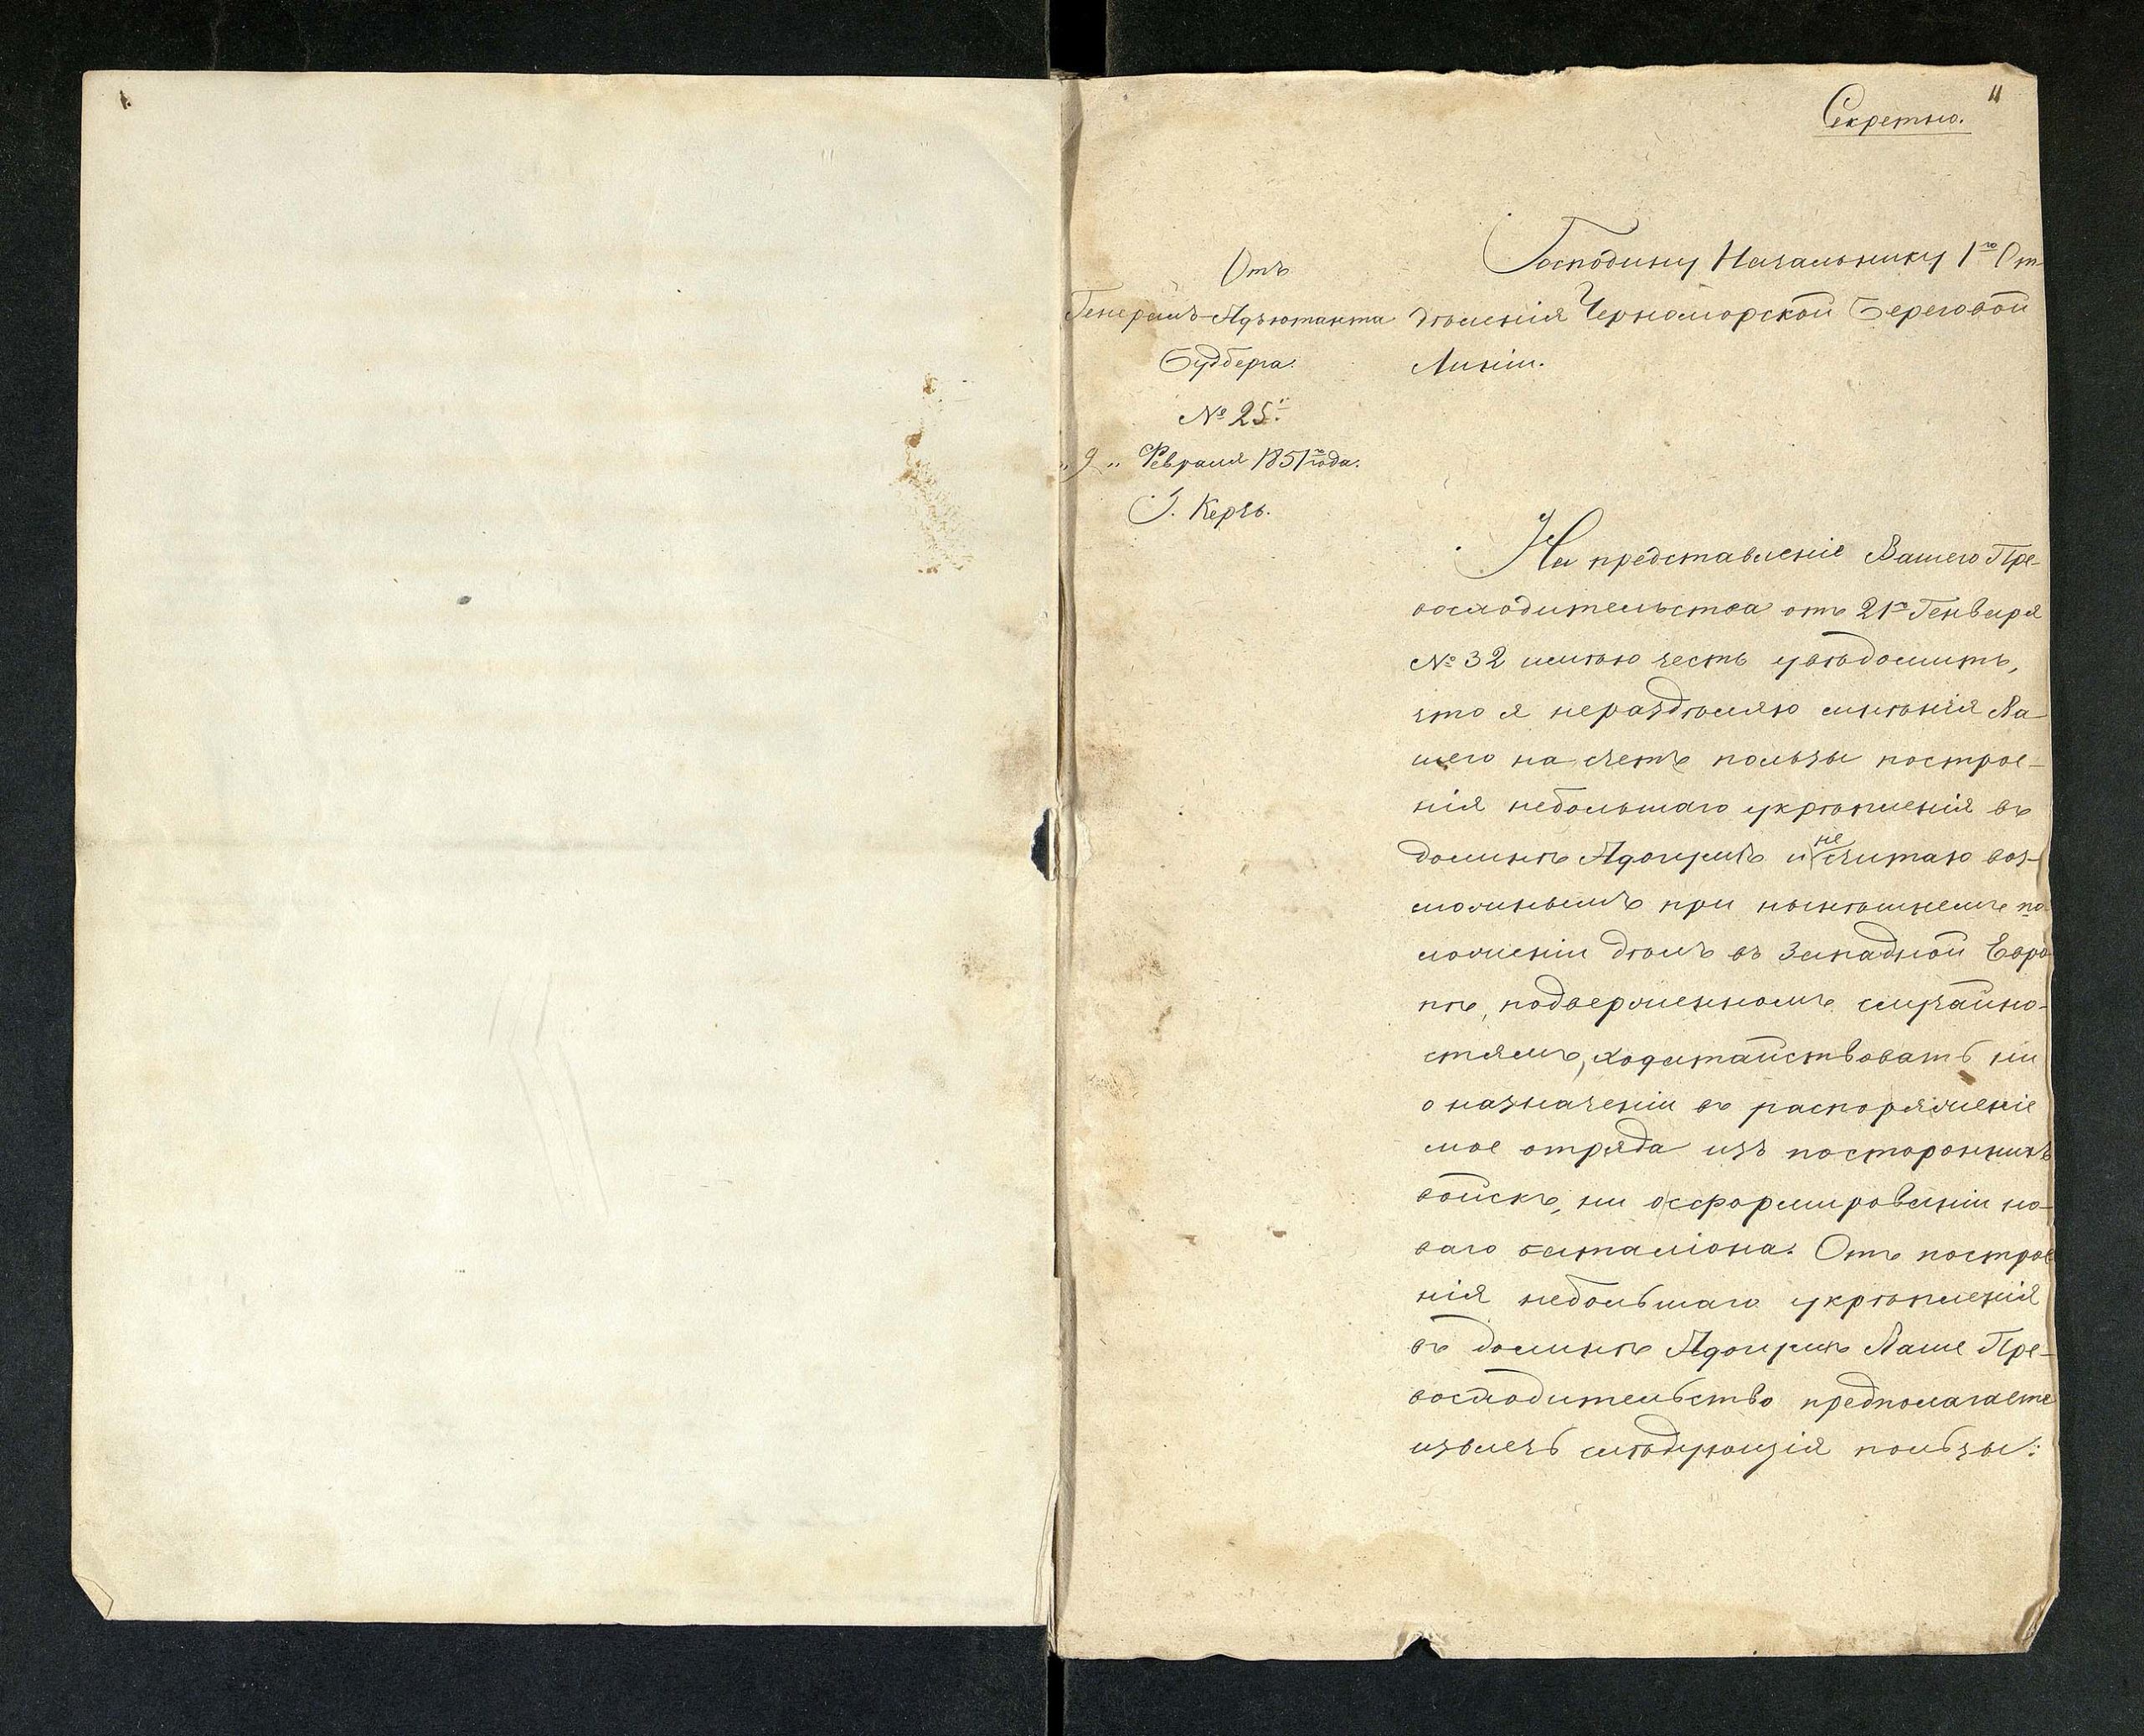 11
Секретно.
Отъ
Генералъ-Адъютанта
Будберга.
№ 25.
„ 9 „ Февраля 1851го года.
Г. Керчь.
Господину Начальнику 1го От-
дѣленія Черноморской Береговой
Линіи.
На представленіе Вашего Пре-
восходительства отъ 21го Генваря
№ 32 имѣю честь увѣдомить,
что я нераздѣляю мнѣнія Ва-
шего на счетъ пользы построе-
нія небольшаго укрѣпленія въ
долинѣ Адагумъ и не считаю воз-
можнымъ при нынѣшнемъ по-
ложеніи дѣлъ въ Западной Евро-
пѣ, подверженномъ случайно-
стямъ, ходатайствовать ни
о назначеніи въ распоряженіе
мое отряда изъ постороннихъ
войскъ, ни осформированіи но-
ваго баталіона. Отъ построе
нія небольшаго укрѣпленія
въ долинѣ Адагумъ Ваше Пре-
восходительство предполагаете
извлечь слѣдующія пользы: